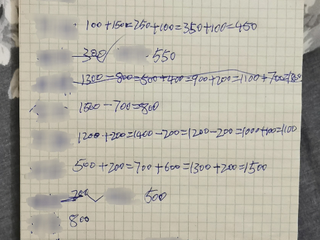 100+150=250+100=350+100=450
300 550
1300-800=500+400=900+200=1100+700=1800
1500-700=800
1200+200=1400-200=1200-200=1000+100=1100
500+200=700+600=1300+200=1500
500
800